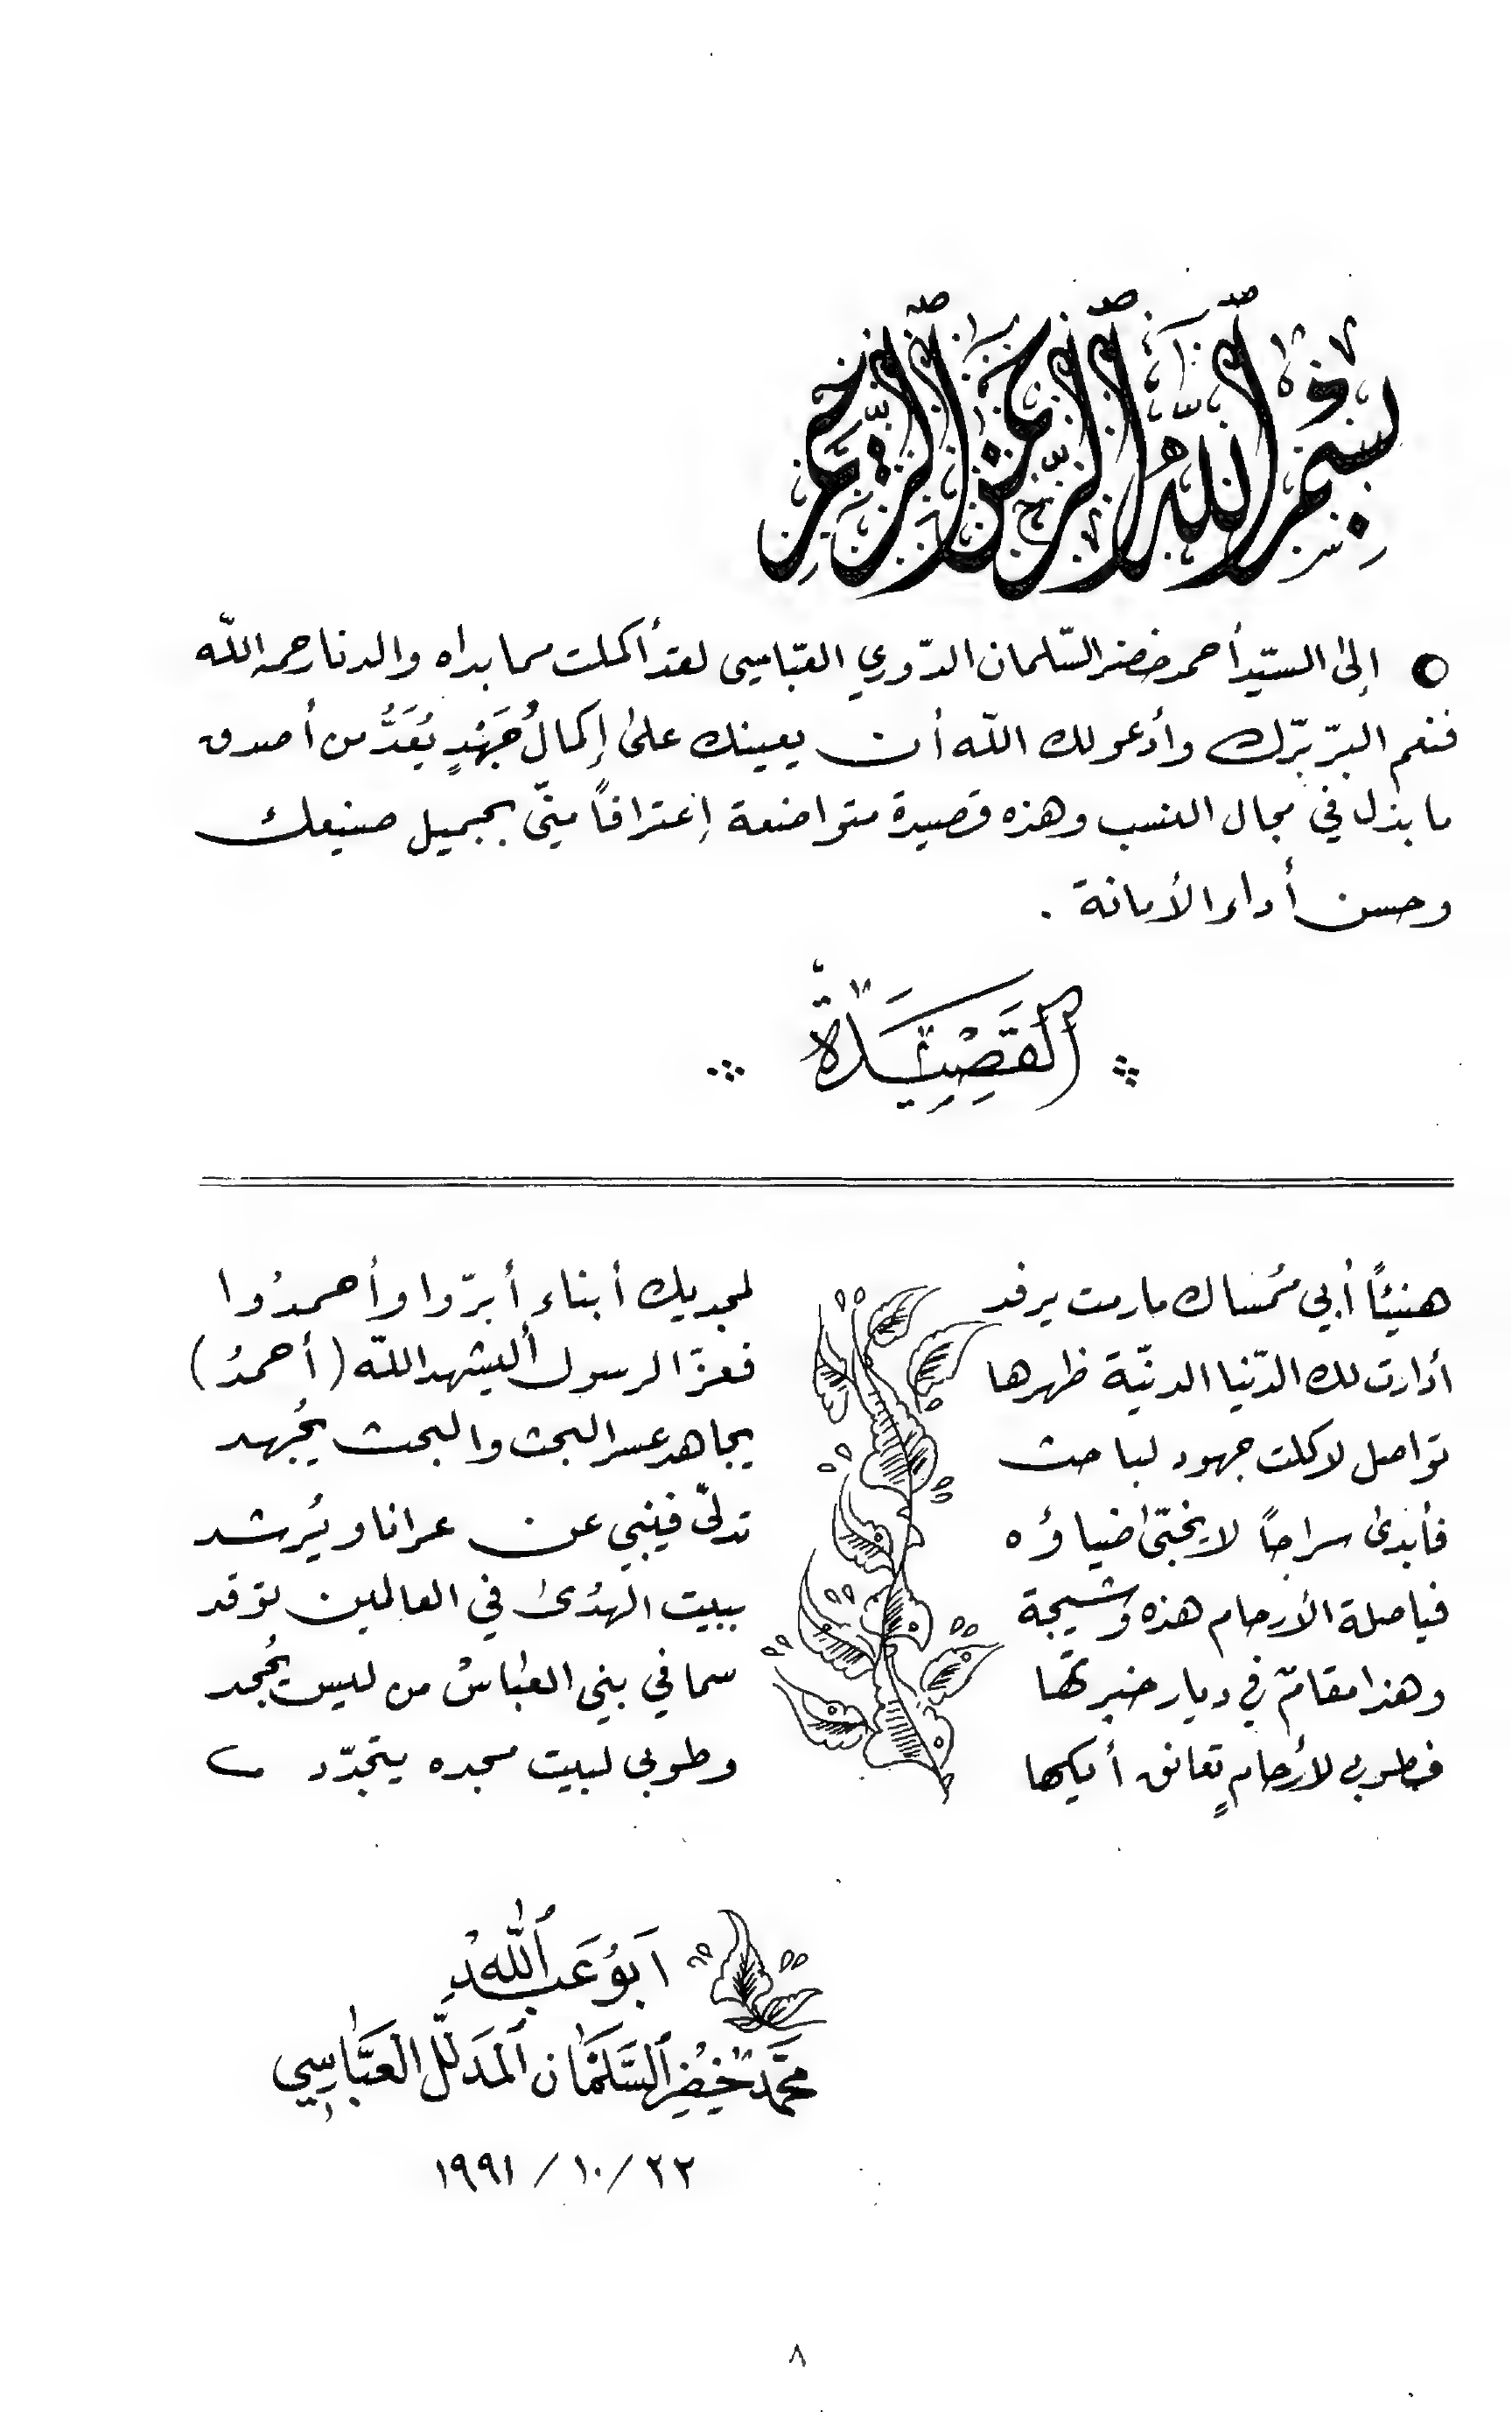 بِسْمِ ٱللَّهِ ٱلرَّحْمَٰنِ ٱلرَّحِيمِ
إلى السيّد أحمد خضر السّلمان الدّوري العبّاسي لقد أكملت مما بداه والدنا رحمه اللّه
فنعم البرّ برّك وأدعو لك اللّه أن يعينك على إكمال جَهْدٍ يُعَدُّ من أصدق
ما بذل في مجال النسب وهذه قصيدة متواضعة إعترافاً منّي بجميل صنيعك
وحسن أداء الأمانة .
ٱلْقَصِيْدَةُ
هنيئاً أبي مُمساك ما رمت يرفد لمجديك أبناء أبرّوا وأحمدُوا
أدارت لك الدّنيا الدنيّة ظهرها فعزّ الرسول أليشهد اللّه (أحمدُ)
تواصل لا كلت جهود لباحث يجاهد عسر البحث والبحث يُجهد
فأبدى سراجاً لا يخبّى ضياؤه تدلّى فينبي عن عرانا ويُرشد
فيا صلة الأرحام هذه وشيجة ببيت الهُدى في العالمين توقد
وهذا مقامٌ في ديار خبرتها سما في بني العبّاس من ليس يُجحد
فطوبى لأرحامٍ تعانق أيكها وطوبى لبيت مجده يتجدّد
ابَوُ عَبدِ ٱللّٰه
محَمَّد خِضِر ٱلسَّلمَان ٱلمَدَلَّل العَبَّاسِي
٢٢/ ١٠/ ١٩٩١
٨